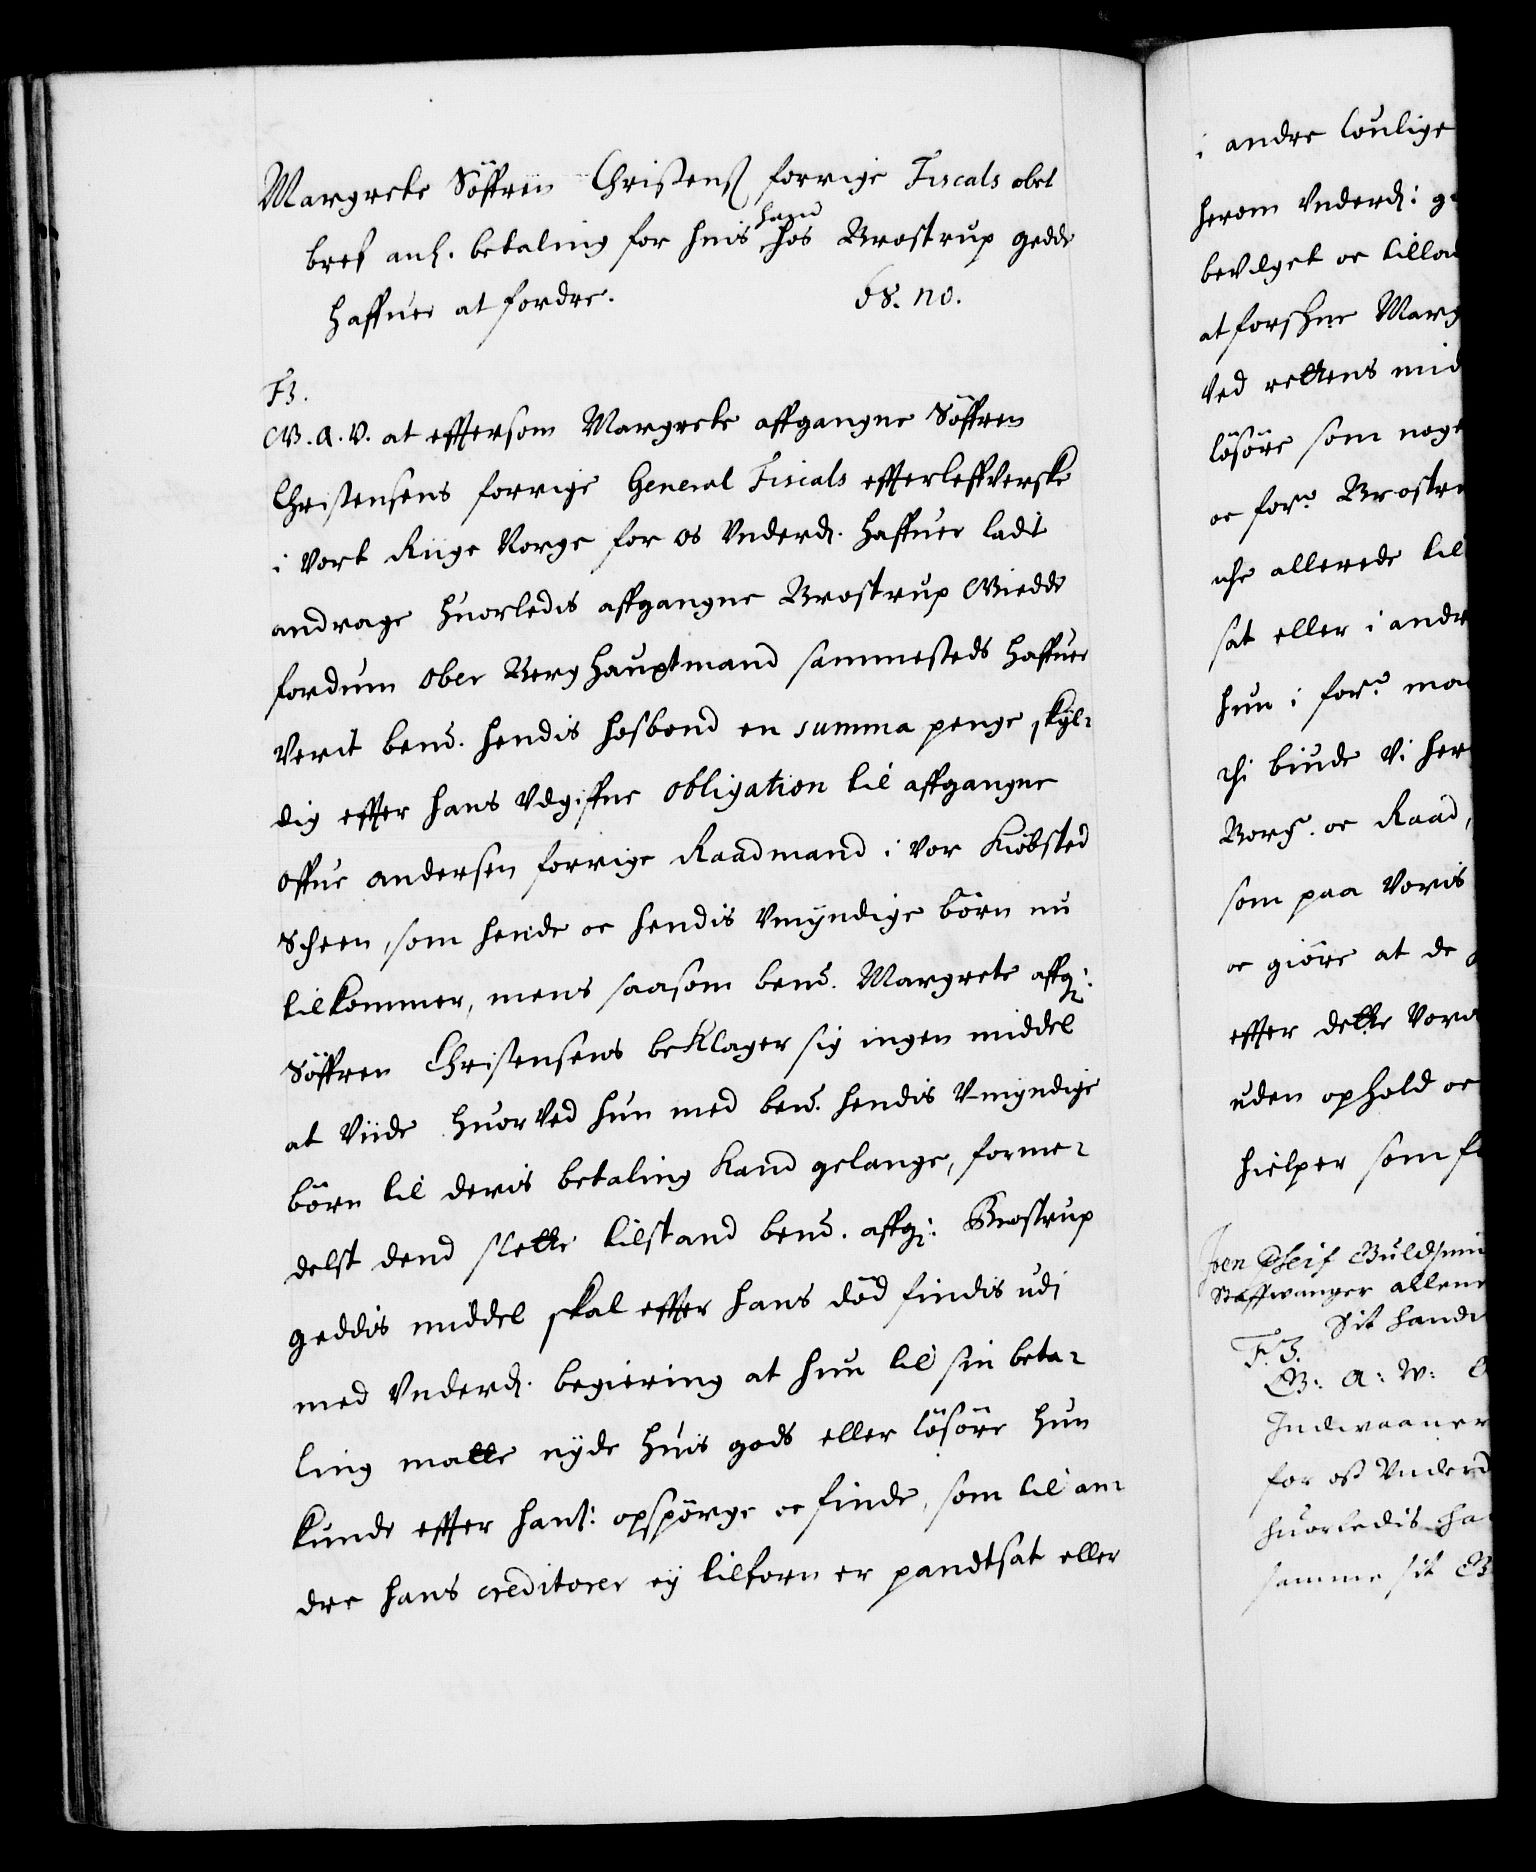 Margrete Söffren Christens forrige Fiscals obet
breff anl. betaling for huis hand hos Brostrup gedde
haffuer at fordre. 58. no.
F3.
G. A. V. at efftersom Margrete affgangne Söffren
Christensens forrige General Fiscals effterleffverske
i Vort Riige Norge for os Vnderd. haffuer ladit
andrage huorledis affgangne Brostrup Giedde
fordum Ober Berghauptmand sammesteds haffuer
Verit bemd. hendis hosbond en summa penge skÿl-
dig effter hans Vdgiffne obligation til affgangne
Offue andersen forrige Raadmand i Vor Kiöbsted
Scheen, som hende oc hendis Vmÿndige börn nu
tilkommer, mens saasom bemd. Margrete affg:
Söffren Christensens beklager sig ingen middel
at Viide huorVed hun med bemd. hendis Vmÿndige
börn til deris betaling kand gelange, forme-
delst dend slette tilstand bemd. affg: Brostrup
geddis middel skal effter hans död findis udi
med Vnderd. begiering at hun til sin beta-
ling matte nÿde huis gods eller lösöre hun
kunde effter hanß: opspörge oc finde, som til an-
dre hans creditorer eÿ tilforn er pandtsat eller
i andre loulige
herom Vnderd: g
bevilget oc tillad
at forskne Marg
Ved rettens mid
lösöre som noge
oc forn. Brostru
iche allerede til
sat eller i andr
hun i forn. ma
thi biude Vi her
Borg. oc Raad,
som paa Voris
oc giöre at de
effter dette Vor
uden ophold oc
hielper som f
Joen Guldsmi
Staffwanger allene
Sit handt
F. 3.
G: A: W:
Indwaaner
for oß Vnderd
huorledis ha
samme sit G